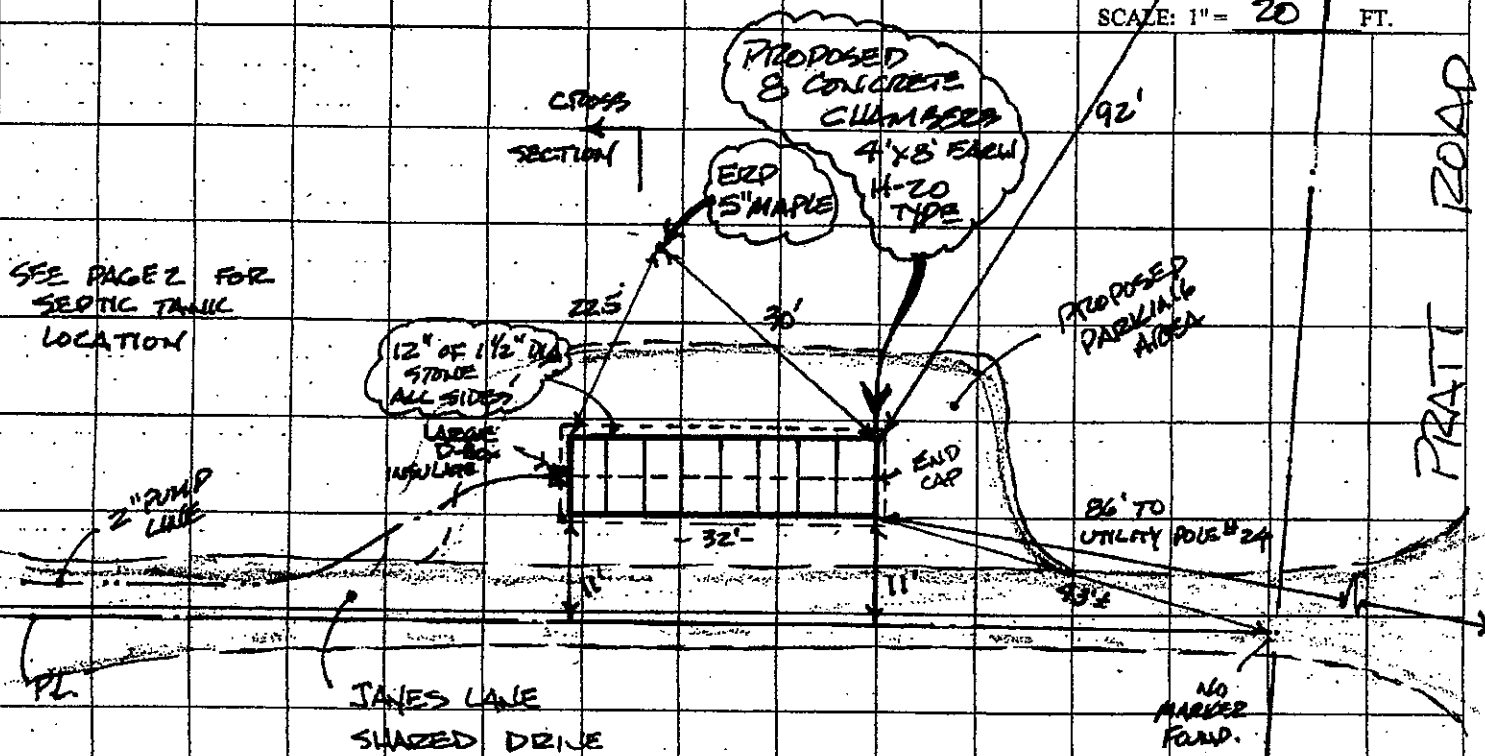 SCALE: 1" = 20 FT.
PROPOSED
8 CONCRETE
CHAMBERS
4'X8'
H-20
TYPE
92'
CROSS
SECTION
ERP
5" MAPLE
PRATT ROAD
SEE PAGE 2 FOR
SEPTIC TANK
LOCATION
22.5'
30'
PROPOSED
PARKING
AREA
12" OF 1 1/2" DIA
STONE
ALL SIDES
LARGE
D-BOX
INSULATE
END
CAP
2" PUMP
LINE
- 32' -
86' TO
UTILITY POLE #24
11'
11'
PL
JAYES LANE
SHARED DRIVE
NO
MARKER
FOUND.